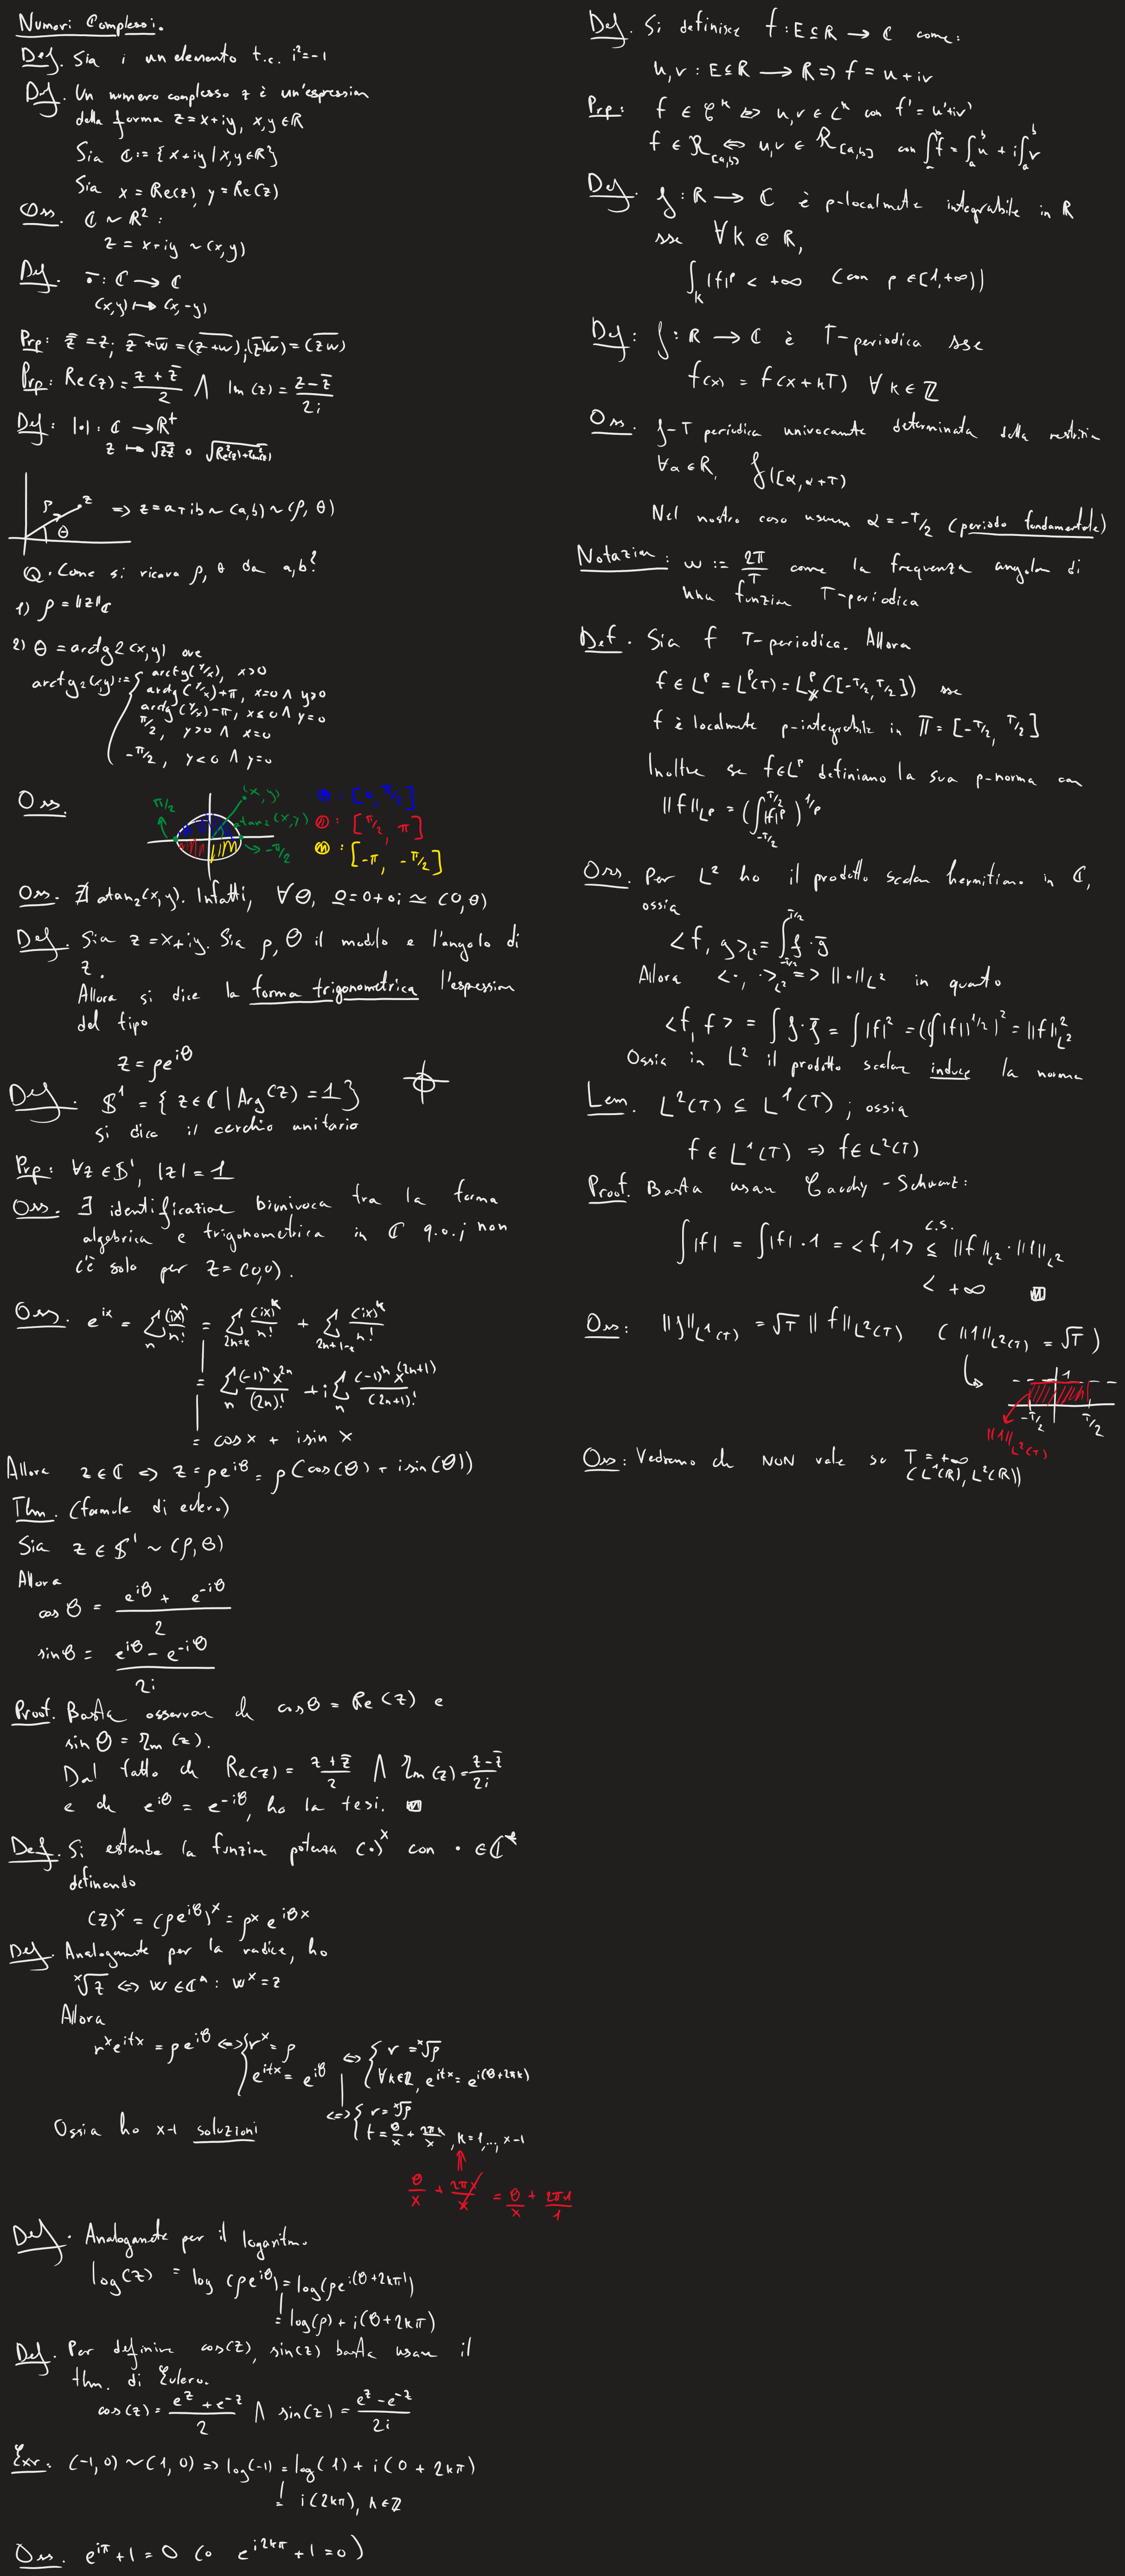 Numeri Complessi.
Def. Sia i un elemento t.c. i²=-1
Def. Un numero complesso z è un'espression
della forma z=x+iy, x,y∈ℝ
Sia ℂ:={x+iy | x,y∈ℝ}
Sia x=Re(z), y=Re(z)
Oss. ℂ ~ ℝ²:
z = x+iy ~ (x,y)
Def. ‾∘: ℂ → ℂ
(x,y) ↦ (x,-y)
Prp: z̿ = z; z̄+w̄ = (z+w)‾; (z̄)(w̄) = (zw)‾
Prp: Re(z) = (z+z̄)/2 ∧ Im(z) = (z-z̄)/2i
Def: |•|: ℂ → ℝ⁺
z ↦ √(zz̄) o √(Re²(z)+Im²(z))
ρ z θ ⇒ z=a+ib ~ (a,b) ~ (ρ, θ)
Q. Come si ricava ρ, θ da a,b?
1) ρ = ‖z‖ℂ
2) θ = arctg2(x,y) ove
arctg₂(x,y):= { arctg(y/x), x>0
arctg(y/x)+π, x=0 ∧ y>0
arctg(y/x)-π, x≤0 ∧ y=0
π/2, y>0 ∧ x=0
-π/2, y<0 ∧ y=0
Oss.
π/2 (x,y) atan2(x,y) -π/2
: [0, π/2]
: [π/2, π]
: [-π, -π/2]
Oss. ∄ atan₂(x,y). Infatti, ∀θ, 0=0+0i ≃ (0,θ)
Def. Sia z=x+iy. Sia ρ, θ il modulo e l'angolo di
z.
Allora si dice la forma trigonometrica l'espression
del tipo
z = ρe^{iθ}
Def. 𝕊¹ = {z∈ℂ | Arg(z) = 1}
si dice il cerchio unitario
Prp: ∀z∈𝕊¹, |z| = 1
Oss. ∃ identificazione biunivoca tra la forma
algebrica e trigonometrica in ℂ q.o.; non
c'è solo per z=(0,0).
Oss. e^{ix} = ∑_n (ix)^n/n! = ∑_{2n=k} (ix)^k/n! + ∑_{2n+1=k} (ix)^k/n!
= ∑_n (-1)^n x^{2n}/(2n)! + i∑_n (-1)^n x^{(2n+1)}/(2n+1)!
= cos x + i sin x
Allora z∈ℂ ⇔ z = ρe^{iθ} = ρ(cos(θ) + i sin(θ))
Thm. (formule di eulero)
Sia z∈𝕊¹ ~ (ρ, θ)
Allora
cos θ = (e^{iθ} + e^{-iθ})/2
sin θ = (e^{iθ} - e^{-iθ})/2i
Proof. Basta osservar ch cos θ = Re(z) e
sin θ = Im(z).
Dal fatto ch Re(z) = (z+z̄)/2 ∧ Im(z) = (z-z̄)/2i
e ch e^{iθ} = e^{-iθ}, ho la tesi.
Def. Si estende la funzion potenza (•)^x con • ∈ℂ*
definendo
(z)^x = (ρe^{iθ})^x = ρ^x e^{iθx}
Def. Analogamente per la radice, ho
ˣ√z ⇔ w∈ℂ: w^x = z
Allora
r^x e^{itx} = ρe^{iθ} ⇔ { r^x = ρ
e^{itx} = e^{iθ}
⇔ { r = ˣ√ρ
∀k∈ℤ, e^{itx} = e^{i(θ+2πk)}
⇔ { r = ˣ√ρ
t = θ/x + 2πk/x, k=1,..., x-1
Ossia ho x-1 soluzioni
θ/x + 2πx/x = θ/x + 2π1/1
Def. Analogamente per il logaritmo
log(z) = log(ρe^{iθ}) = log(ρe^{i(θ+2kπ)})
= log(ρ) + i(θ+2kπ)
Def. Per definire cos(z), sin(z) basta usare il
thm. di Eulero.
cos(z) = (e^z + e^{-z})/2 ∧ sin(z) = (e^z - e^{-z})/2i
Exr: (-1,0) ~ (1,0) ⇒ log(-1) = log(1) + i(0+2kπ)
= i(2kπ), k∈ℤ
Oss. e^{iπ}+1 = 0 (o e^{i2kπ}+1=0)
Def. Si definisce f: E⊆ℝ → ℂ come:
u,v : E⊆ℝ → ℝ ⇒ f = u+iv
Prp: f ∈ 𝒞^k ⇔ u,v ∈ 𝒞^k con f' = u'+iv'
f ∈ ℛ[a,b] ⇔ u,v ∈ ℛ[a,b] con ∫_a^b f = ∫_a^b u + i∫_a^b v
Def. f: ℝ → ℂ è p-localmente integrabile in ℝ
sse ∀K⋐ℝ,
∫_K |f|^p < +∞ (con p∈[1,+∞))
Def: f: ℝ → ℂ è T-periodica sse
f(x) = f(x+kT) ∀k∈ℤ
Oss. f-T periodica univocamente determinata dalla restrizion
∀α∈ℝ, f|[α,α+T)
Nel nostro caso usiam α = -T/2 (periodo fondamentale)
Notazion: ω := 2π/T come la frequenza angolar di
una funzion T-periodica
Def. Sia f T-periodica. Allora
f∈L^p = L^p(T) = L^p_X([-T/2, T/2]) sse
f è localmente p-integrabile in 𝕋 = [-T/2, T/2]
Inoltre se f∈L^p definiamo la sua p-norma con
‖f‖_{L^p} = (∫_{-T/2}^{T/2} |f|^p)^{1/p}
Oss. Per L² ho il prodotto scalar hermitiano in ℂ,
ossia
<f, g>_{L²} = ∫_{-T/2}^{T/2} f · ḡ
Allora <·,·>_{L²} ⇒ ‖•‖_{L²} in quanto
<f, f> = ∫ f·f̄ = ∫|f|² = ((∫|f|)^{1/2})² = ‖f‖²_{L²}
Ossia in L² il prodotto scalar induce la norma
Lem. L²(T) ⊆ L¹(T); ossia
f ∈ L¹(T) ⇒ f∈L²(T)
Proof. Basta usar Cauchy-Schwarz:
∫|f| = ∫|f|·1 = <f,1> ≤^{c.s.} ‖f‖_{L²}·‖1‖_{L²}
< +∞
Oss: ‖f‖_{L¹(T)} = √T ‖f‖_{L²(T)} (‖1‖_{L²(T)} = √T)
1
-T/2 T/2
‖1‖_{L²(T)}
Oss: Vedremo ch NON vale se T = +∞
(L¹(ℝ), L²(ℝ))